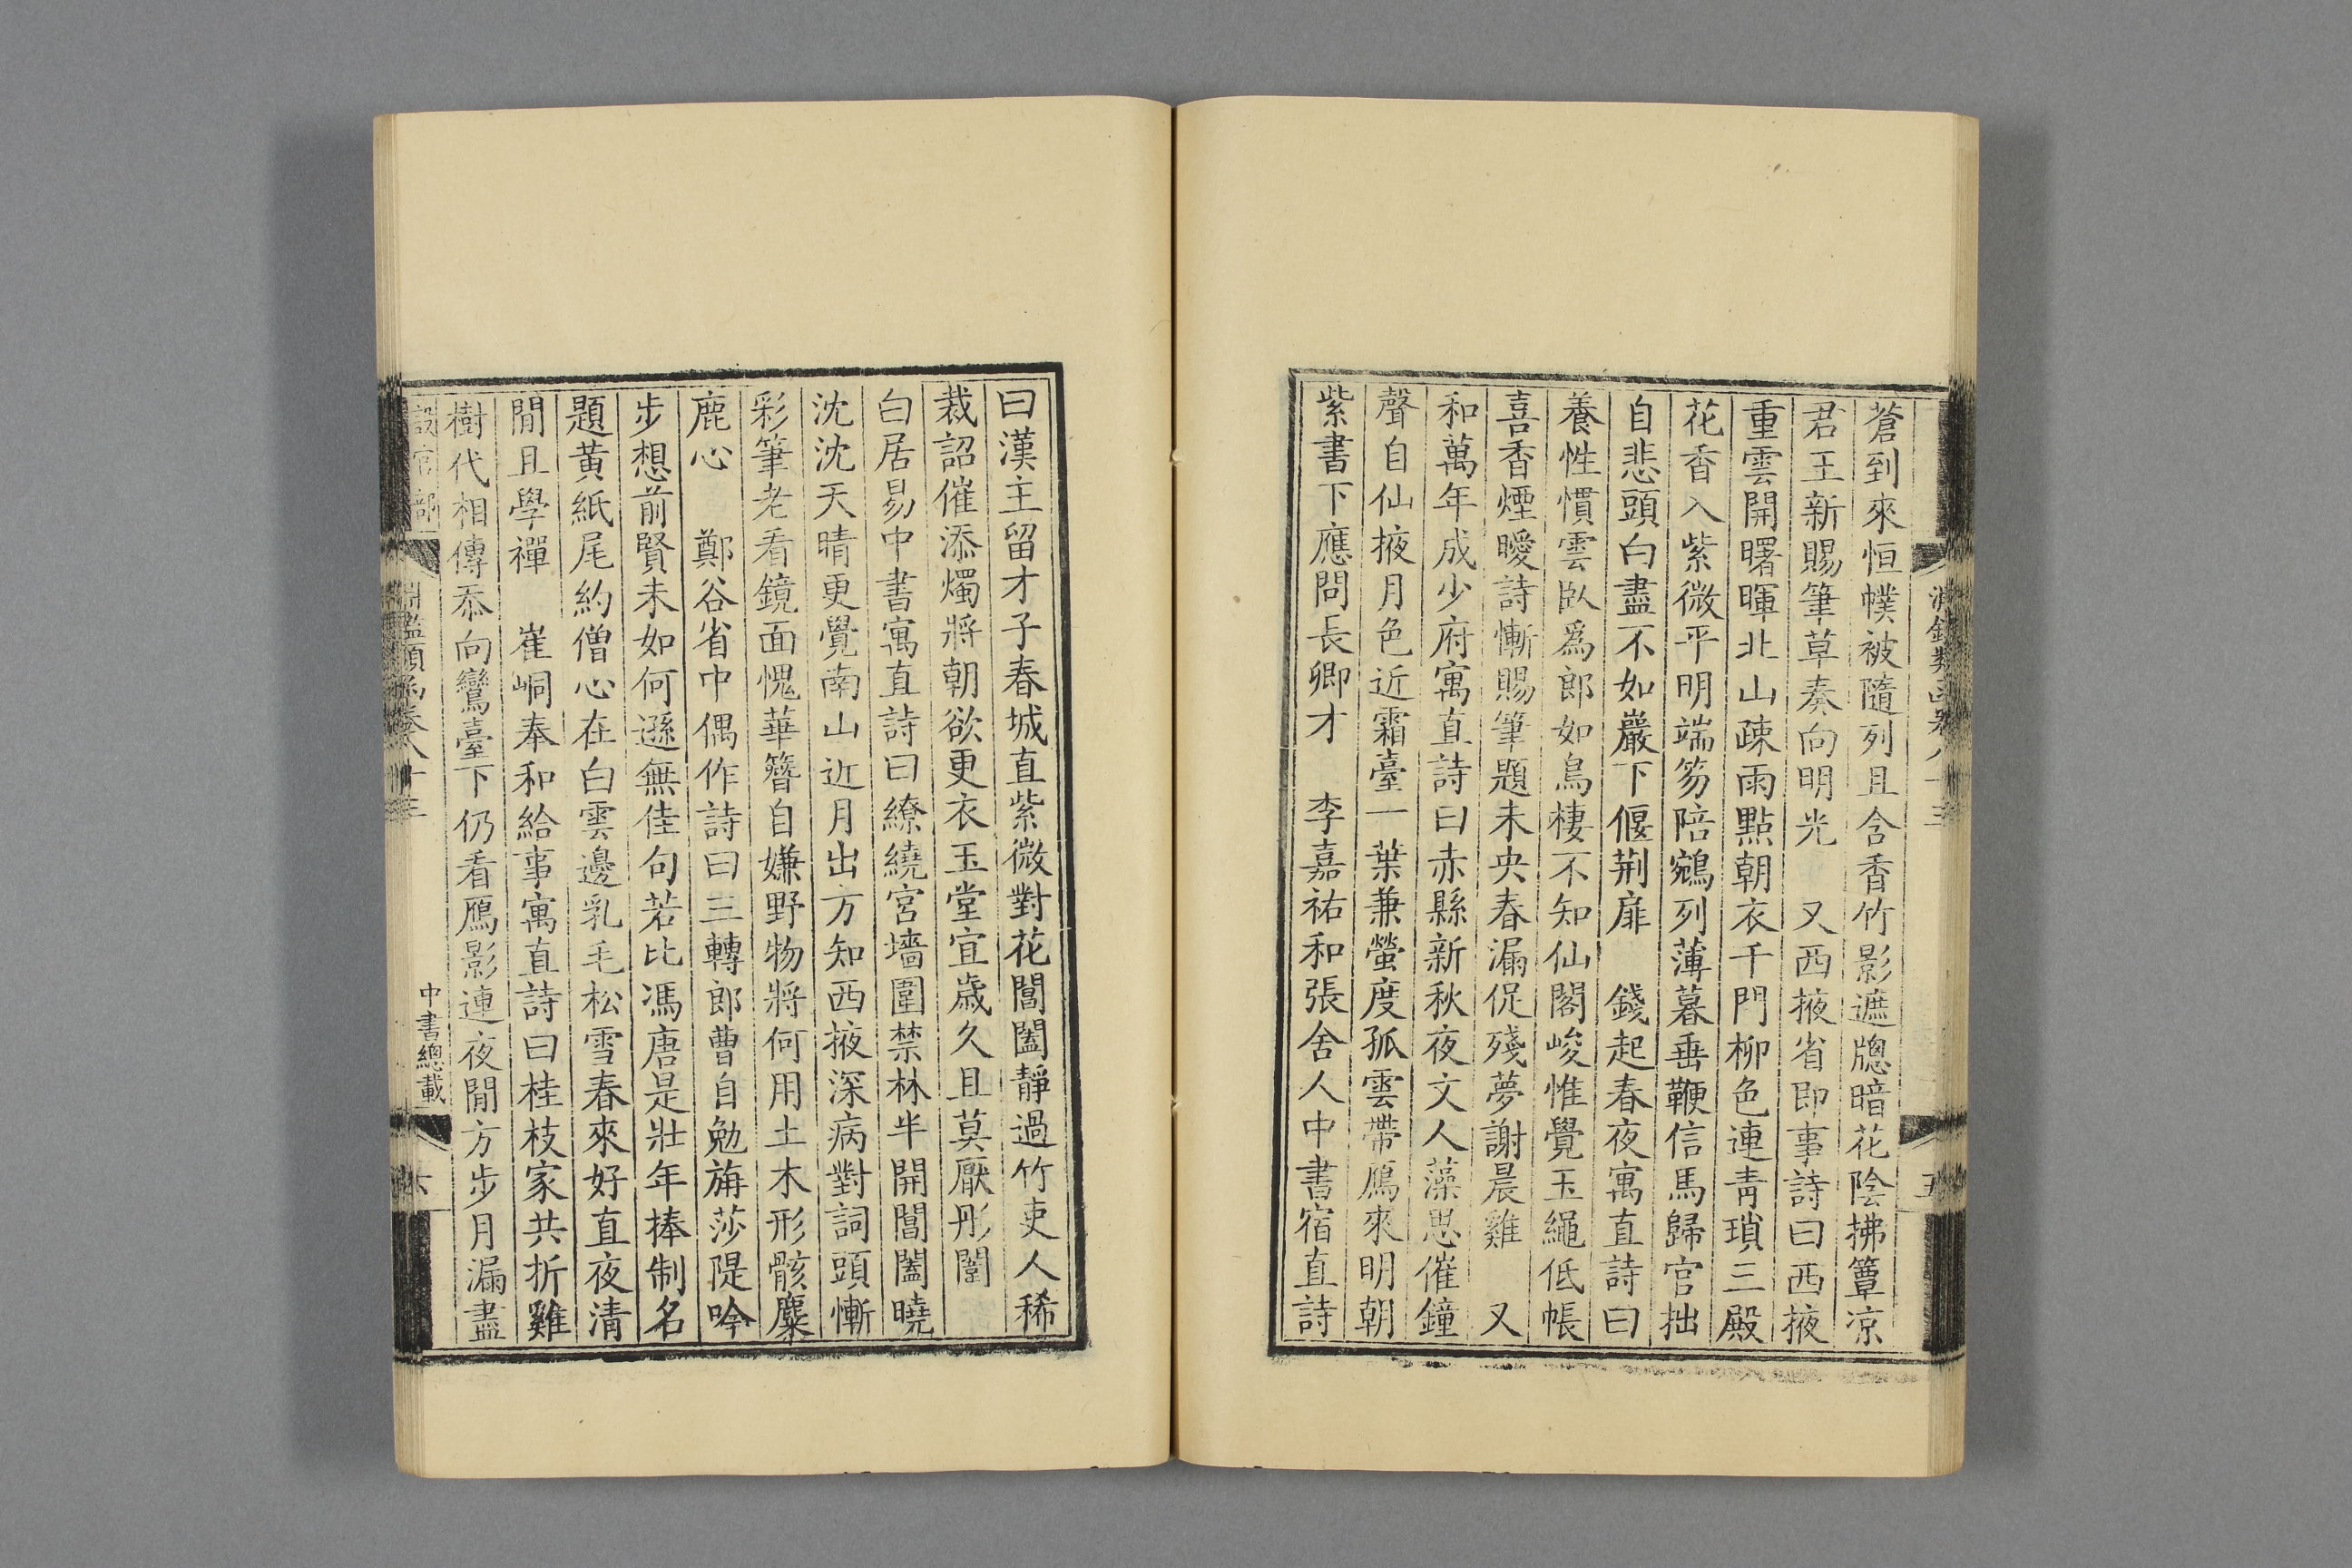 淵鑑類函卷八十三
五
蒼到來恒襆被隨列且含香竹影遮牕暗花陰拂簟凉
君王新賜筆草奏向明光　又西掖省即事詩曰西掖
重雲開曙暉北山疎雨點朝衣千門柳色連青瑣三殿
花香入紫微平明端笏陪鵷列薄暮垂鞭信馬歸官拙
自悲頭白盡不如巖下偃荆扉　錢起春夜寓直詩曰
養性慣雲臥爲郎如鳥棲不知仙閣峻惟覺玉繩低帳
喜香煙曖詩慚賜筆題未央春漏促殘夢謝晨雞　又
和萬年成少府寓直詩曰赤縣新秋夜文人藻思催鐘
聲自仙掖月色近霜臺一葉兼螢度孤雲帶鴈來明朝
紫書下應問長卿才　李嘉祐和張舍人中書宿直詩
曰漢主留才子春城直紫微對花閶闔靜過竹吏人稀
裁詔催添燭將朝欲更衣玉堂宜歲久且莫厭彤闈
白居易中書寓直詩曰繚繞宮墻圍禁林半開閶闔曉
沈沈天晴更覺南山近月出方知西掖深病對詞頭慚
彩筆老看鏡面愧華簪自嫌野物將何用土木形骸麋
鹿心　鄭谷省中偶作詩曰三轉郎曹自勉旃莎隄吟
步想前賢未如何遜無佳句若比馮唐是壯年捧制名
題黃紙尾約僧心在白雲邊乳毛松雪春來好直夜清
閒且學禪　崔峒奉和給事寓直詩曰桂枝家共折雞
樹代相傳忝向鸞臺下仍看鴈影連夜閒方步月漏盡
設官部
淵鑑類函卷八十三
中書總載
六